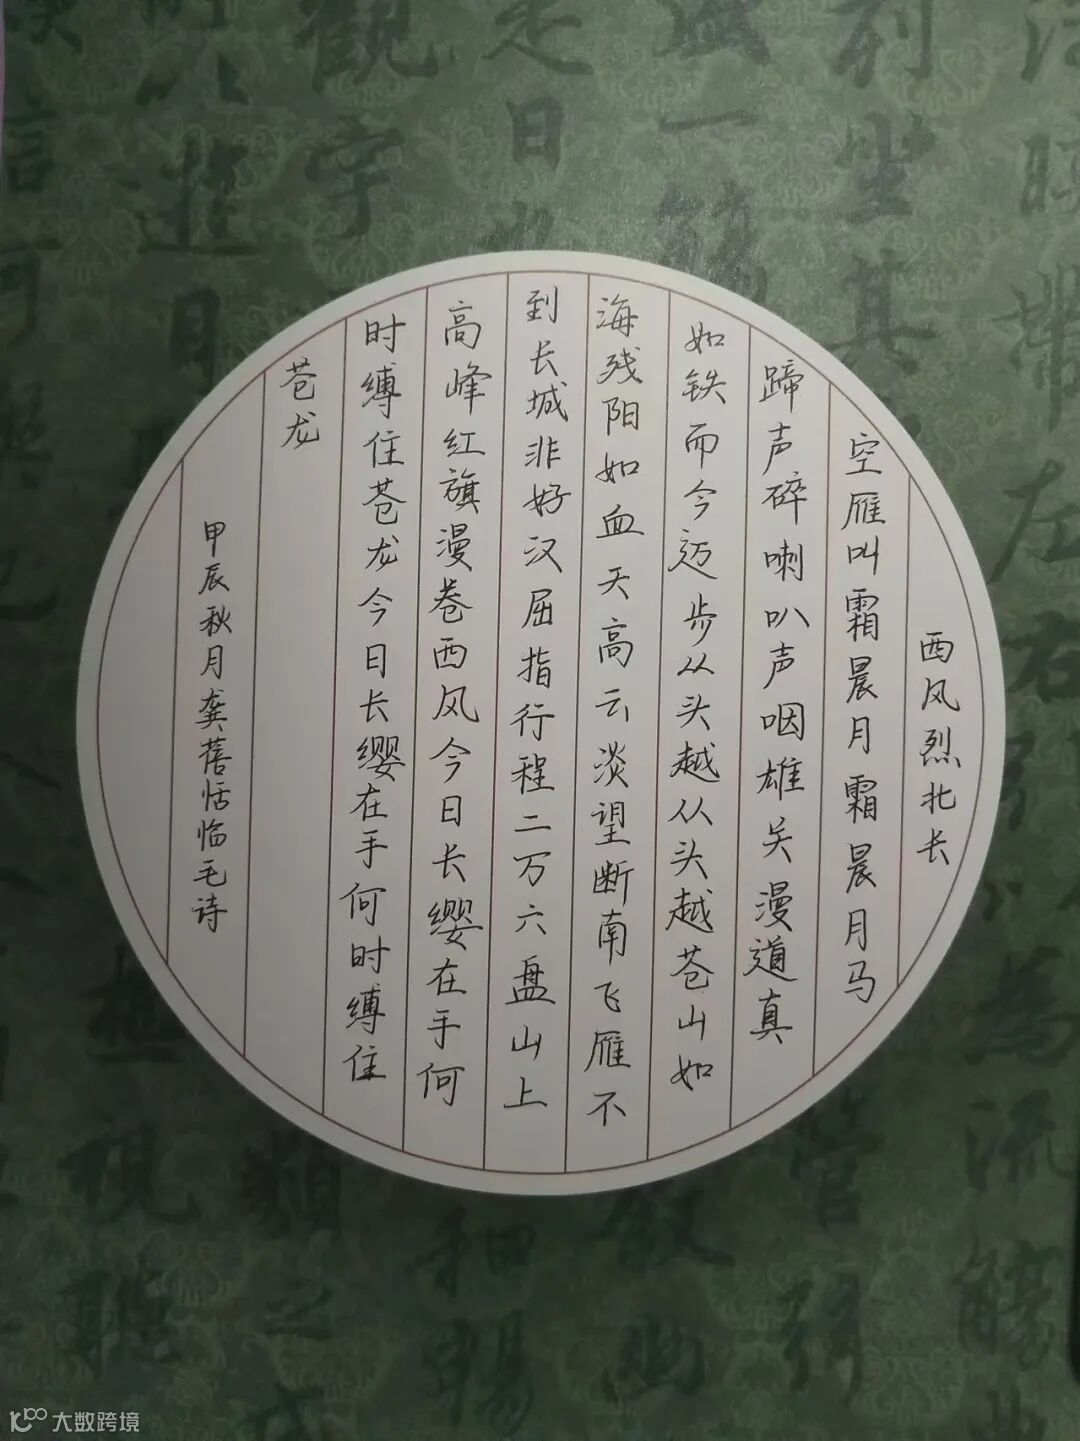 西风烈北长
空雁叫霜晨月霜晨月马
蹄声碎喇叭声咽雄关漫道真
如铁而今迈步从头越从头越苍山如
海残阳如血天高云淡望断南飞雁不
到长城非好汉屈指行程二万六盘山上
高峰红旗漫卷西风今日长缨在手何
时缚住苍龙今日长缨在手何时缚住
苍龙
甲辰秋月龚蓓恬临毛诗
大数跨境